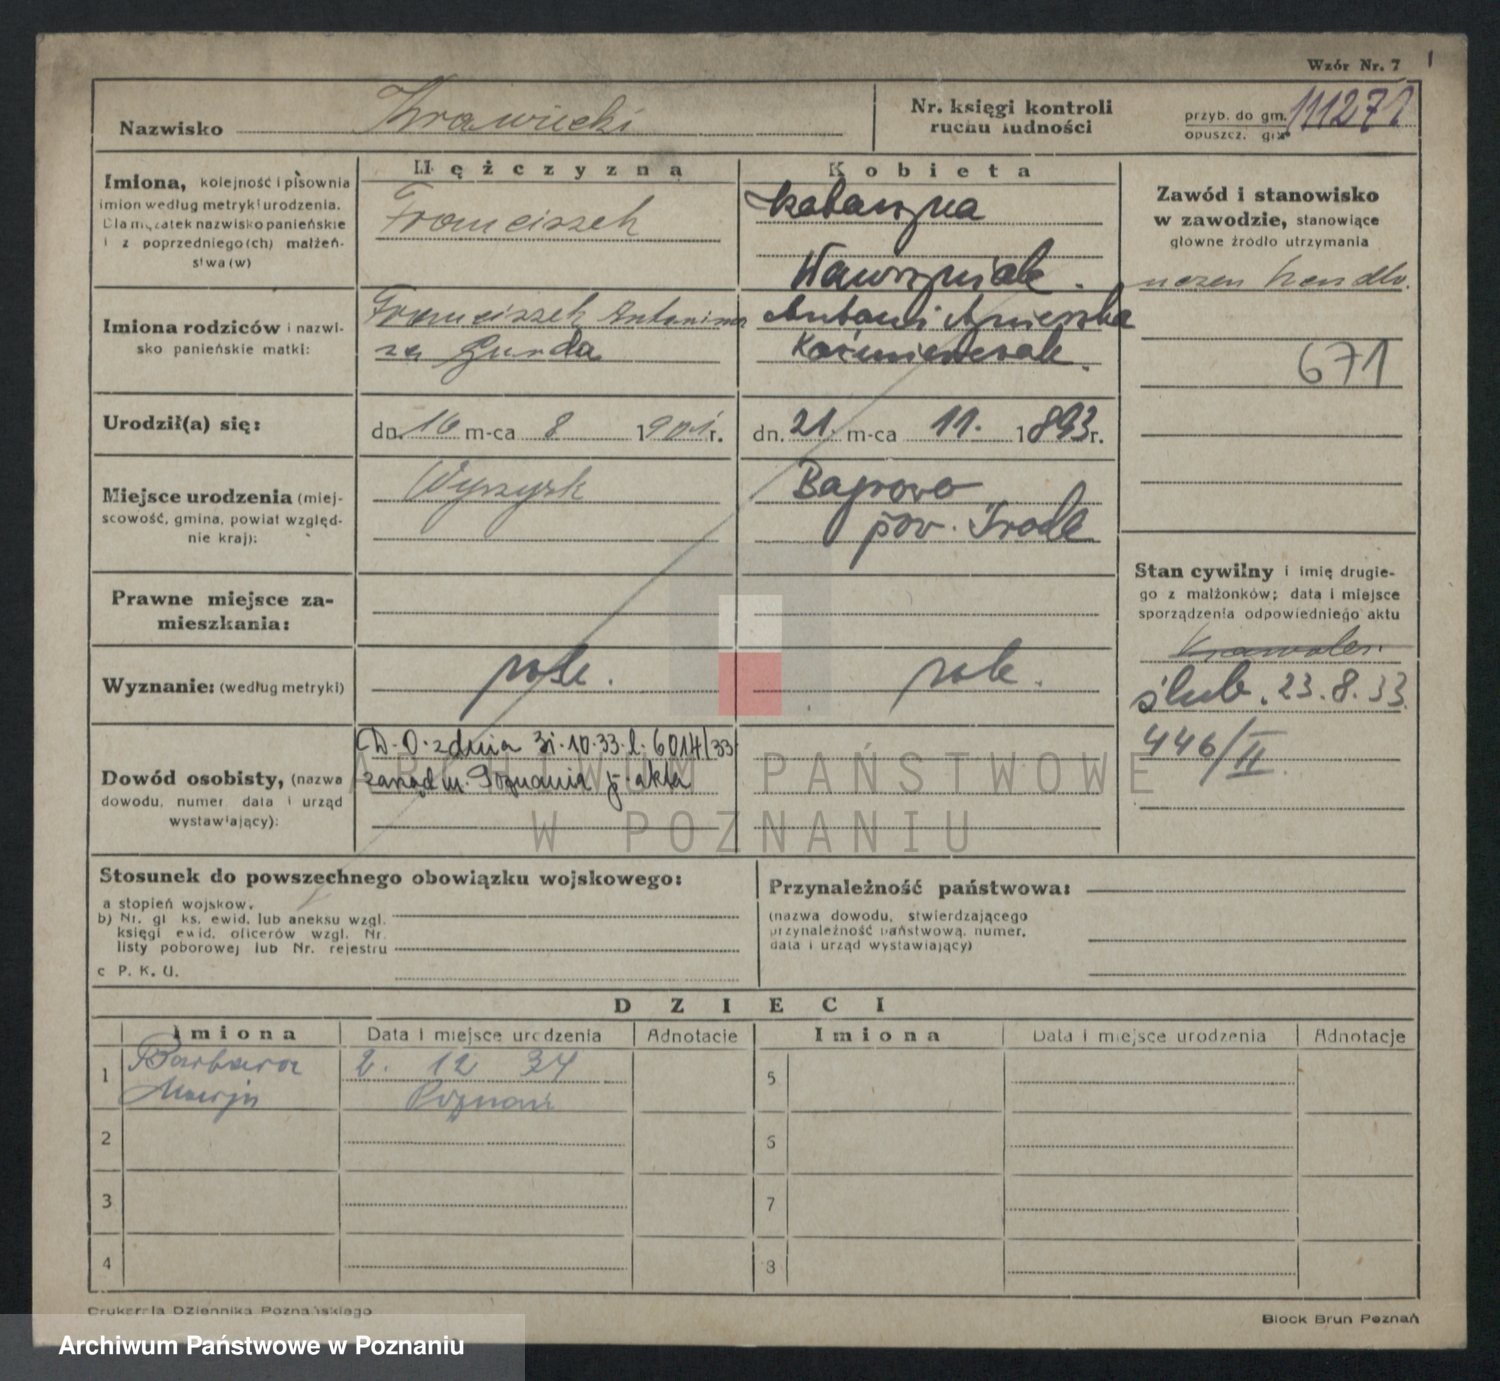 Wzór Nr. 7
Nazwisko Krawiecki
Nr. księgi kontroli
ruchu ludności
przyb. do gm. 111271
opuszcz. gm.
Mężczyzna
Kobieta
Imiona, kolejność i pisownia
imion według metryki urodzenia.
Dla mężatek nazwisko panieńskie
i z poprzedniego(ch) małżeń-
stwa(w)
Franciszek
Katarzyna
Wawrzyniak.
Zawód i stanowisko
w zawodzie, stanowiące
główne źródło utrzymania
uczen handlo.
671
Imiona rodziców i nazwi-
sko panieńskie matki:
Franciszek Antonina
za Gurda
Antoni Agnieszka
Urodził(a) się:
dn. 16 m-ca 8 1901 r.
dn. 21. m-ca 11. 1893 r.
Miejsce urodzenia (miej-
scowość, gmina, powiat względ-
nie kraj):
Wyrzysk
pov. Sroda
Prawne miejsce za-
mieszkania:
Stan cywilny i imię drugie-
go z małżonków; data i miejsce
sporządzenia odpowiedniego aktu
ślub. 23.8.33.
446/II
Wyznanie: (według metryki)
Dowód osobisty, (nazwa
dowodu, numer data i urząd
wystawiający):
D. O. z dnia 31.10.33. l. 6014/33
zarząd m. Poznania j. akta
ARCHIWUM PAŃSTWOWE
W POZNANIU
Stosunek do powszechnego obowiązku wojskowego:
a stopień wojskow.
b) Nr. gł ks. ewid. lub aneksu wzgl.
księgi ewid. oficerów wzgl. Nr.
listy poborowej lub Nr. rejestru
c P. K. U.
Przynależność państwowa:
(nazwa dowodu, stwierdzającego
przynależność państwową, numer,
data i urząd wystawiający)
DZIECI
Imiona
Data i miejsce urodzenia
Adnotacie
Imiona
Data i miejsce urodzenia
Adnotacje
1 Barbara 2. 12 34
Marja Poznań
5
2
6
3
7
4
8
Drukarnia Dziennika Poznańskiego
Block Brun Poznań
Archiwum Państwowe w Poznaniu